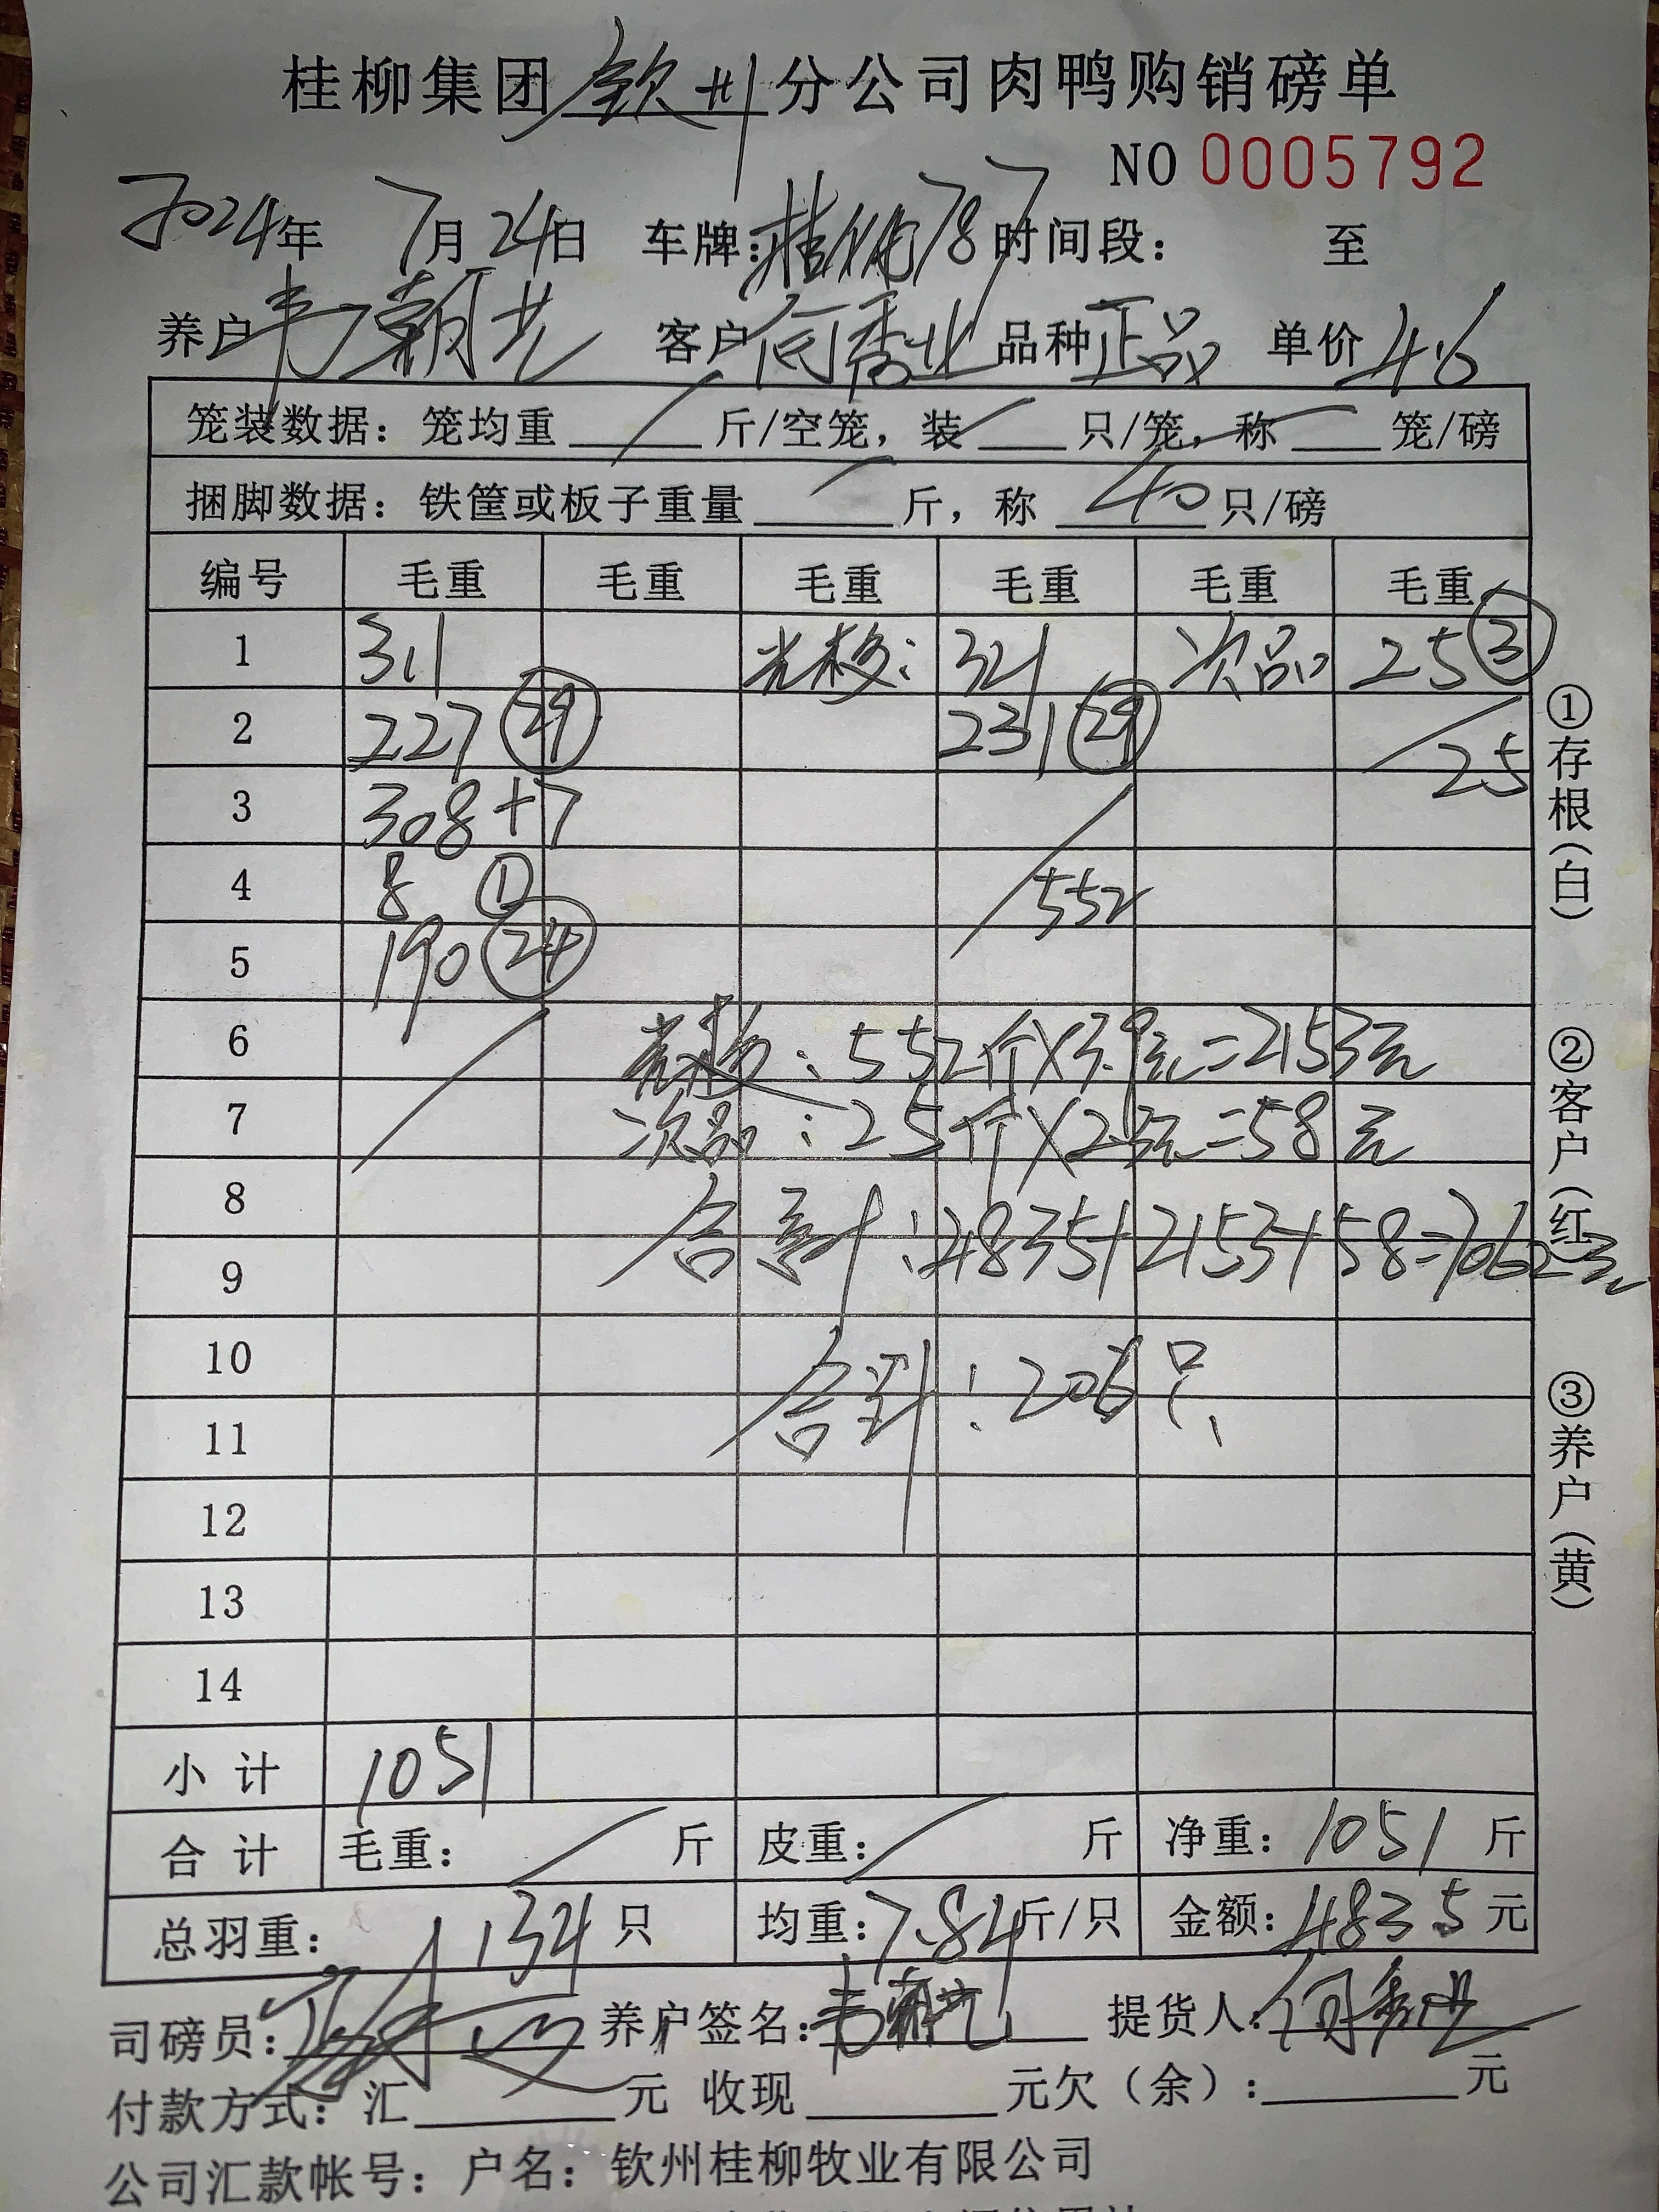 桂柳集团钦州分公司肉鸭购销磅单
NO 0005792
2024年 7月24日 车牌:桂柳787 时间段: 至
养户韦朝艺 客户何秀业 品种正品 单价4.6
笼装数据: 笼均重 斤/空笼, 装 只/笼, 称 笼/磅
捆脚数据: 铁筐或板子重量 斤, 称 40 只/磅
编号 毛重 毛重 毛重 毛重 毛重 毛重
1 311 321 次品 25 ③
2 227 29 231 29 25
3 308+7
4 8 ① 552
5 190 24
6 552斤×3.9元=2153元
7 次品:25斤×2.3元=58元
8 合计:4835+2153+58=7062元
9
10 合计:206只
11
12
13
14
小计 1051
合计 毛重: 斤 皮重: 斤 净重: 1051 斤
总羽重: 134 只 均重:7.84斤/只 金额:4835元
司磅员: 养户签名: 提货人:何秀业
付款方式: 汇 元 收现 元欠(余): 元
公司汇款帐号: 户名: 钦州桂柳牧业有限公司
①存根(白)
②客户(红)
③养户(黄)